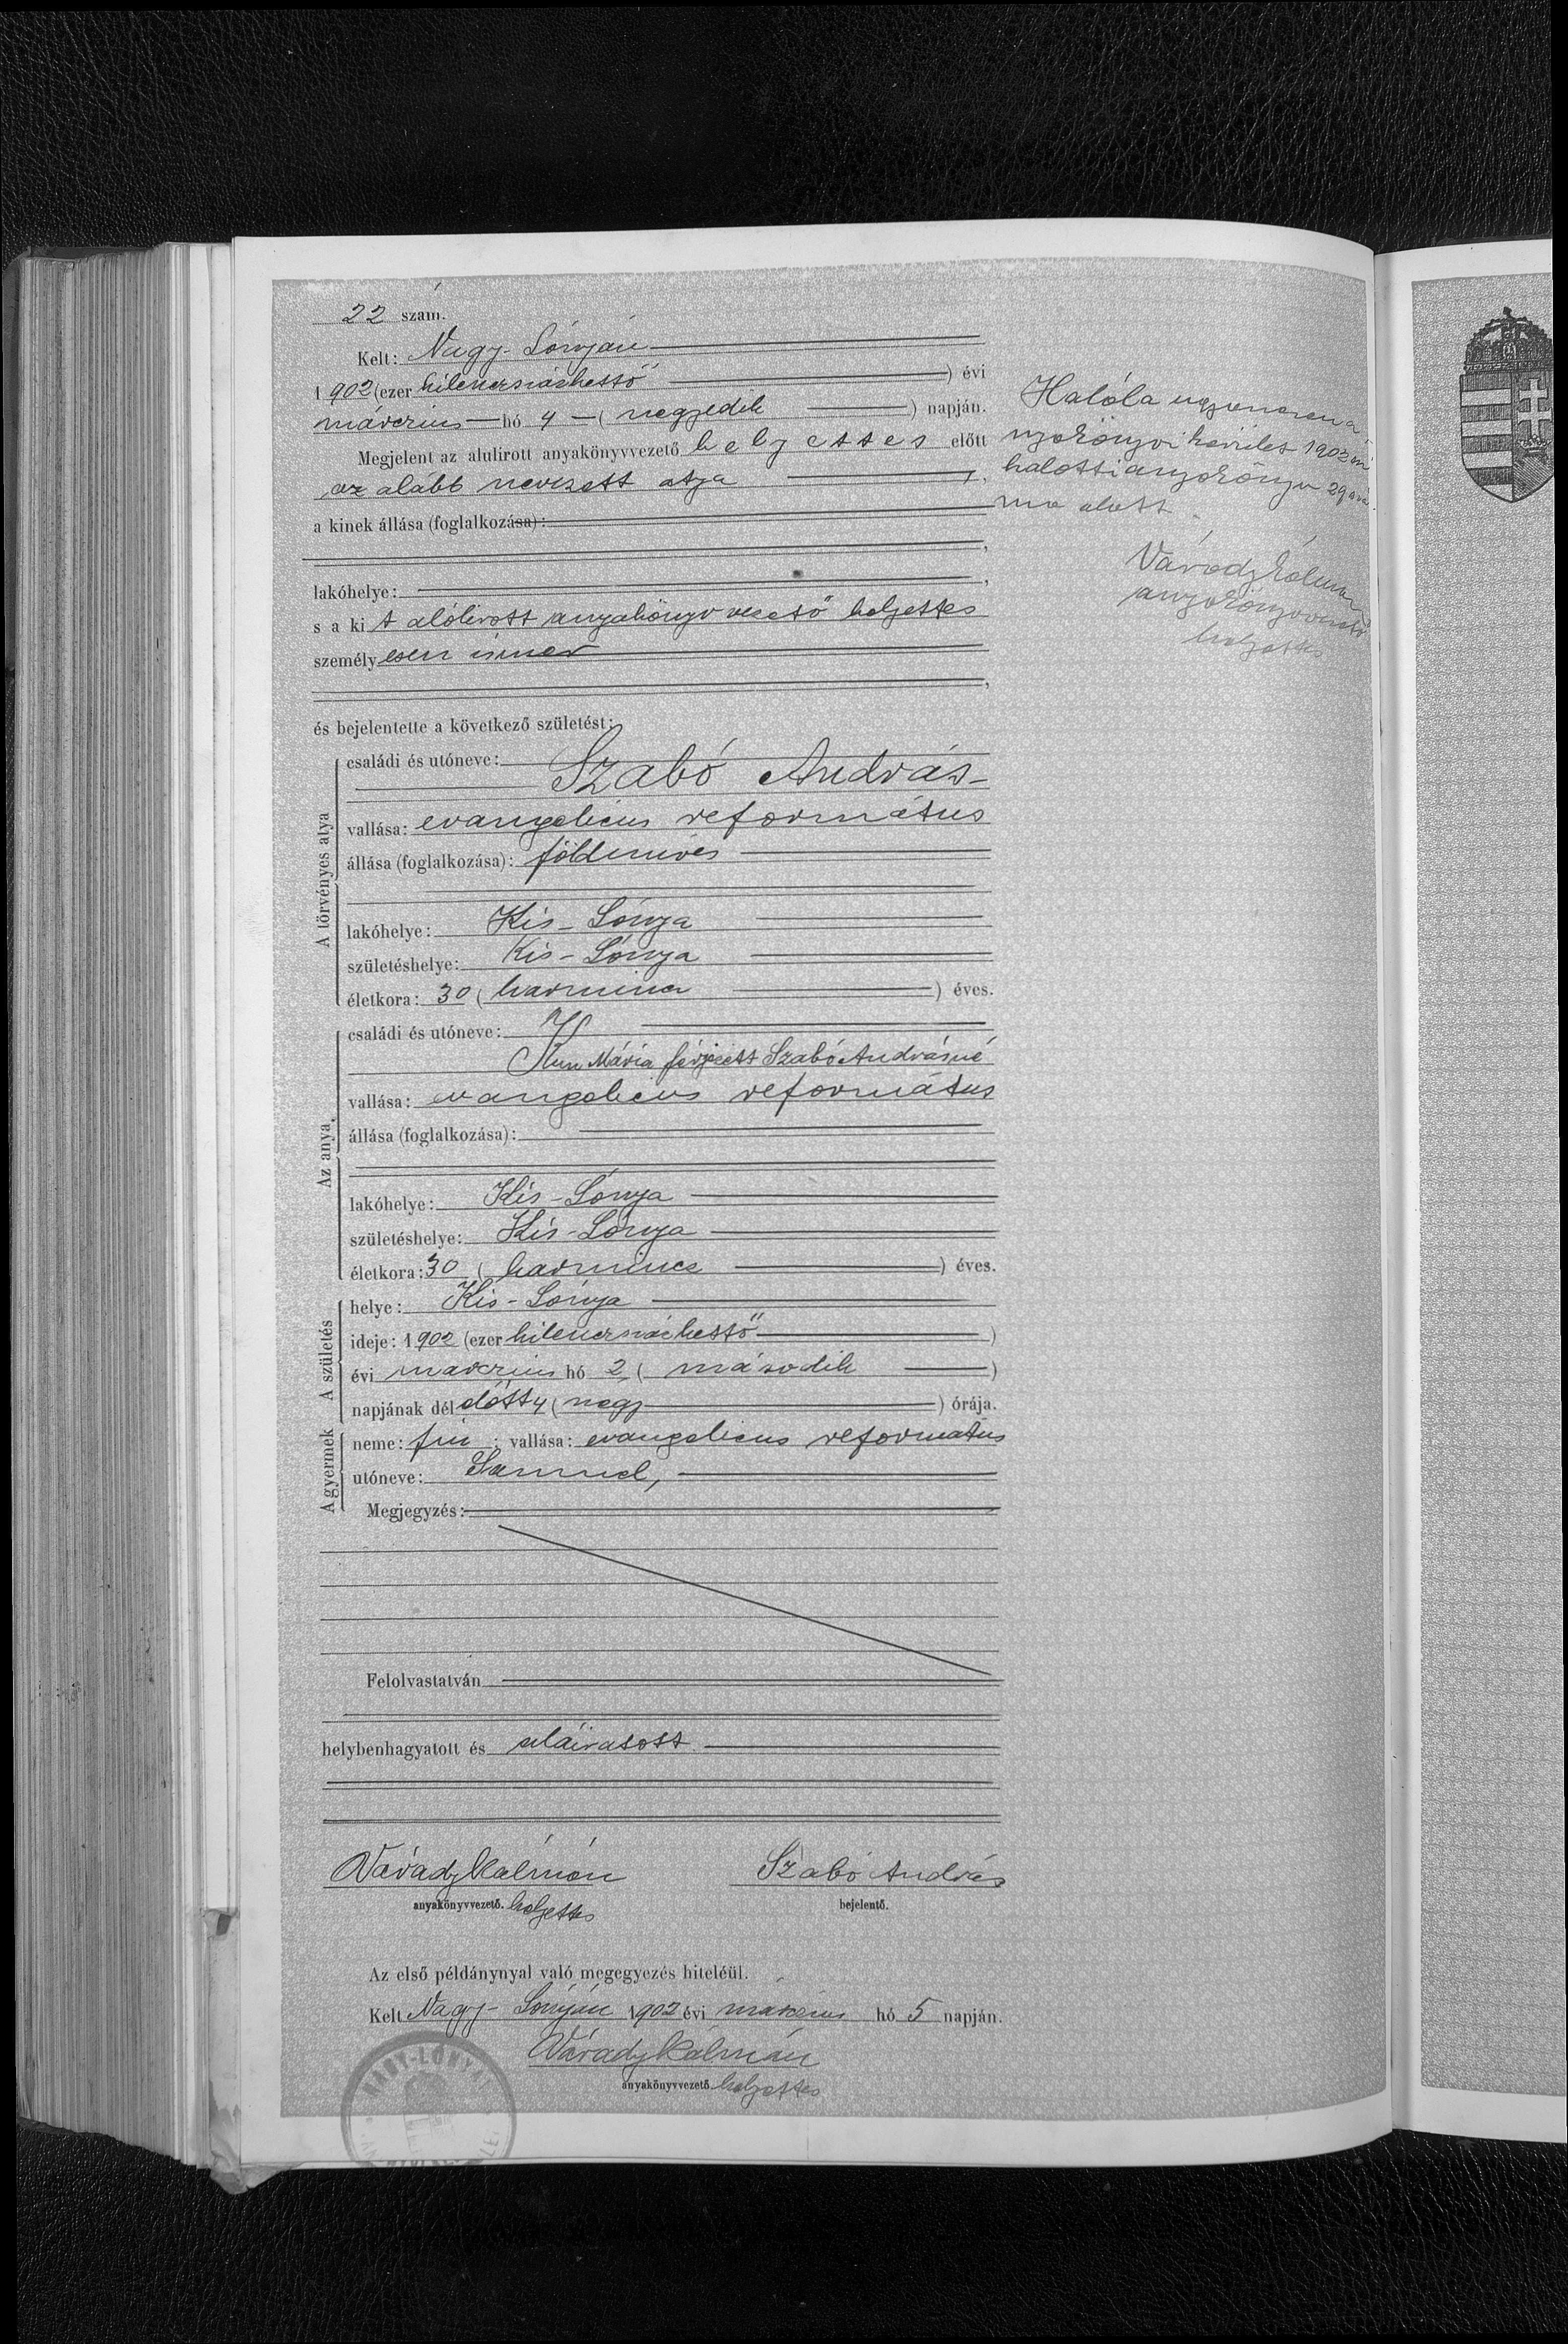 22 szám.
Kelt: Nagy-Lónyán
1902 (ezer kilencszázkettő) évi
márczius hó 4 (negyedik) napján.
Megjelent az alulirott anyakönyvvezető helyettes előtt
az alább nevezett atya,
a kinek állása (foglalkozása):
lakóhelye:
s a kit alólirott anyakönyvvezető helyettes
személyesen ismer
és bejelentette a következő születést:
A törvényes atya
családi és utóneve:
Szabó András
vallása: evangelicus református
állása (foglalkozása): földmives
lakóhelye: Kis-Lónya
születéshelye: Kis-Lónya
életkora: 30 (harmincz) éves.
Az anya
családi és utóneve:
Kun Mária férjezett Szabó Andrásné
vallása: evangelicus református
állása (foglalkozása):
lakóhelye: Kis-Lónya
születéshelye: Kis-Lónya
életkora: 30 (harmincz) éves.
A születés
helye: Kis-Lónya
ideje: 1902 (ezer kilencszázkettő)
évi márczius hó 2 (második)
napjának délelőtt 4 (négy) órája.
A gyermek
neme: fiú; vallása: evangelicus református
utóneve: Samuel,
Megjegyzés:
Felolvastatván
helybenhagyatott és aláiratott
Várady Kálmán
anyakönyvvezető. helyettes
Szabó András
bejelentő.
Az első példánynyal való megegyezés hiteléül.
Kelt Nagy-Lónyán 1902 évi márczius hó 5 napján.
Várady Kálmán
anyakönyvvezető helyettes
NAGY-LÓNYAI
Halála ugyanazon a-
nyakönyvi kerület 1902 évi
halotti anyakönyv 29 szá-
ma alatt.
Várady Kálmán
anyakönyvvezető
helyettes